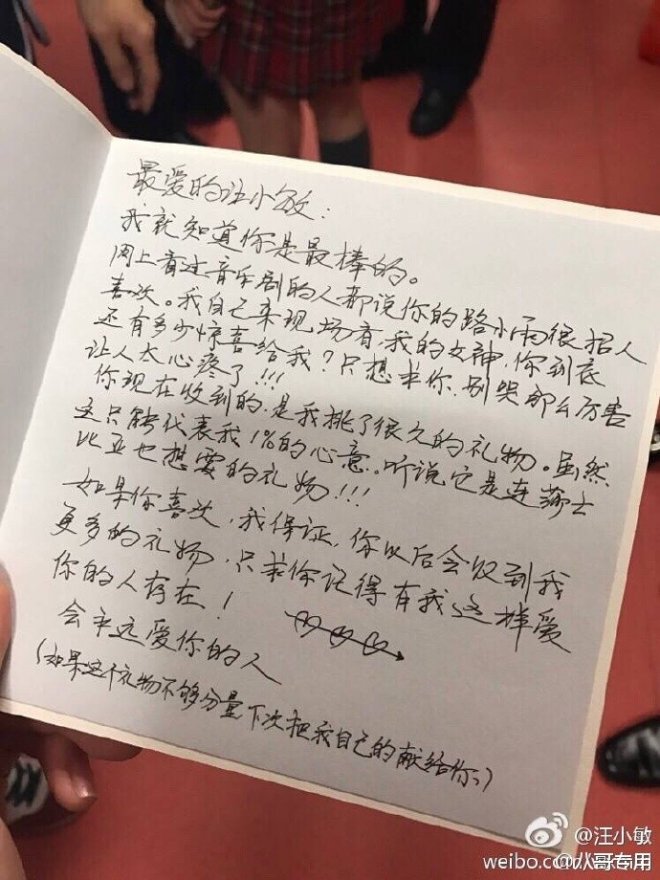 最爱的汪小敏:
我就知道你是最棒的。
网上看过音乐剧的人都说你的路小雨很招人
喜欢。我自己来现场看,我的女神,你到底
还有多少惊喜给我?只想求你,别哭那么厉害
让人太心疼了!!!
你现在收到的,是我挑了很久的礼物。虽然
这只能代表我1%的心意。听说它是连莎士
比亚也想要的礼物!!!
如果你喜欢,我保证,你以后会收到我
更多的礼物,只求你记得有我这样爱
你的人存在!
会永远爱你的人
(如果这个礼物不够分量下次把我自己的献给你:)
@汪小敏
weibo.com/
@八哥专用